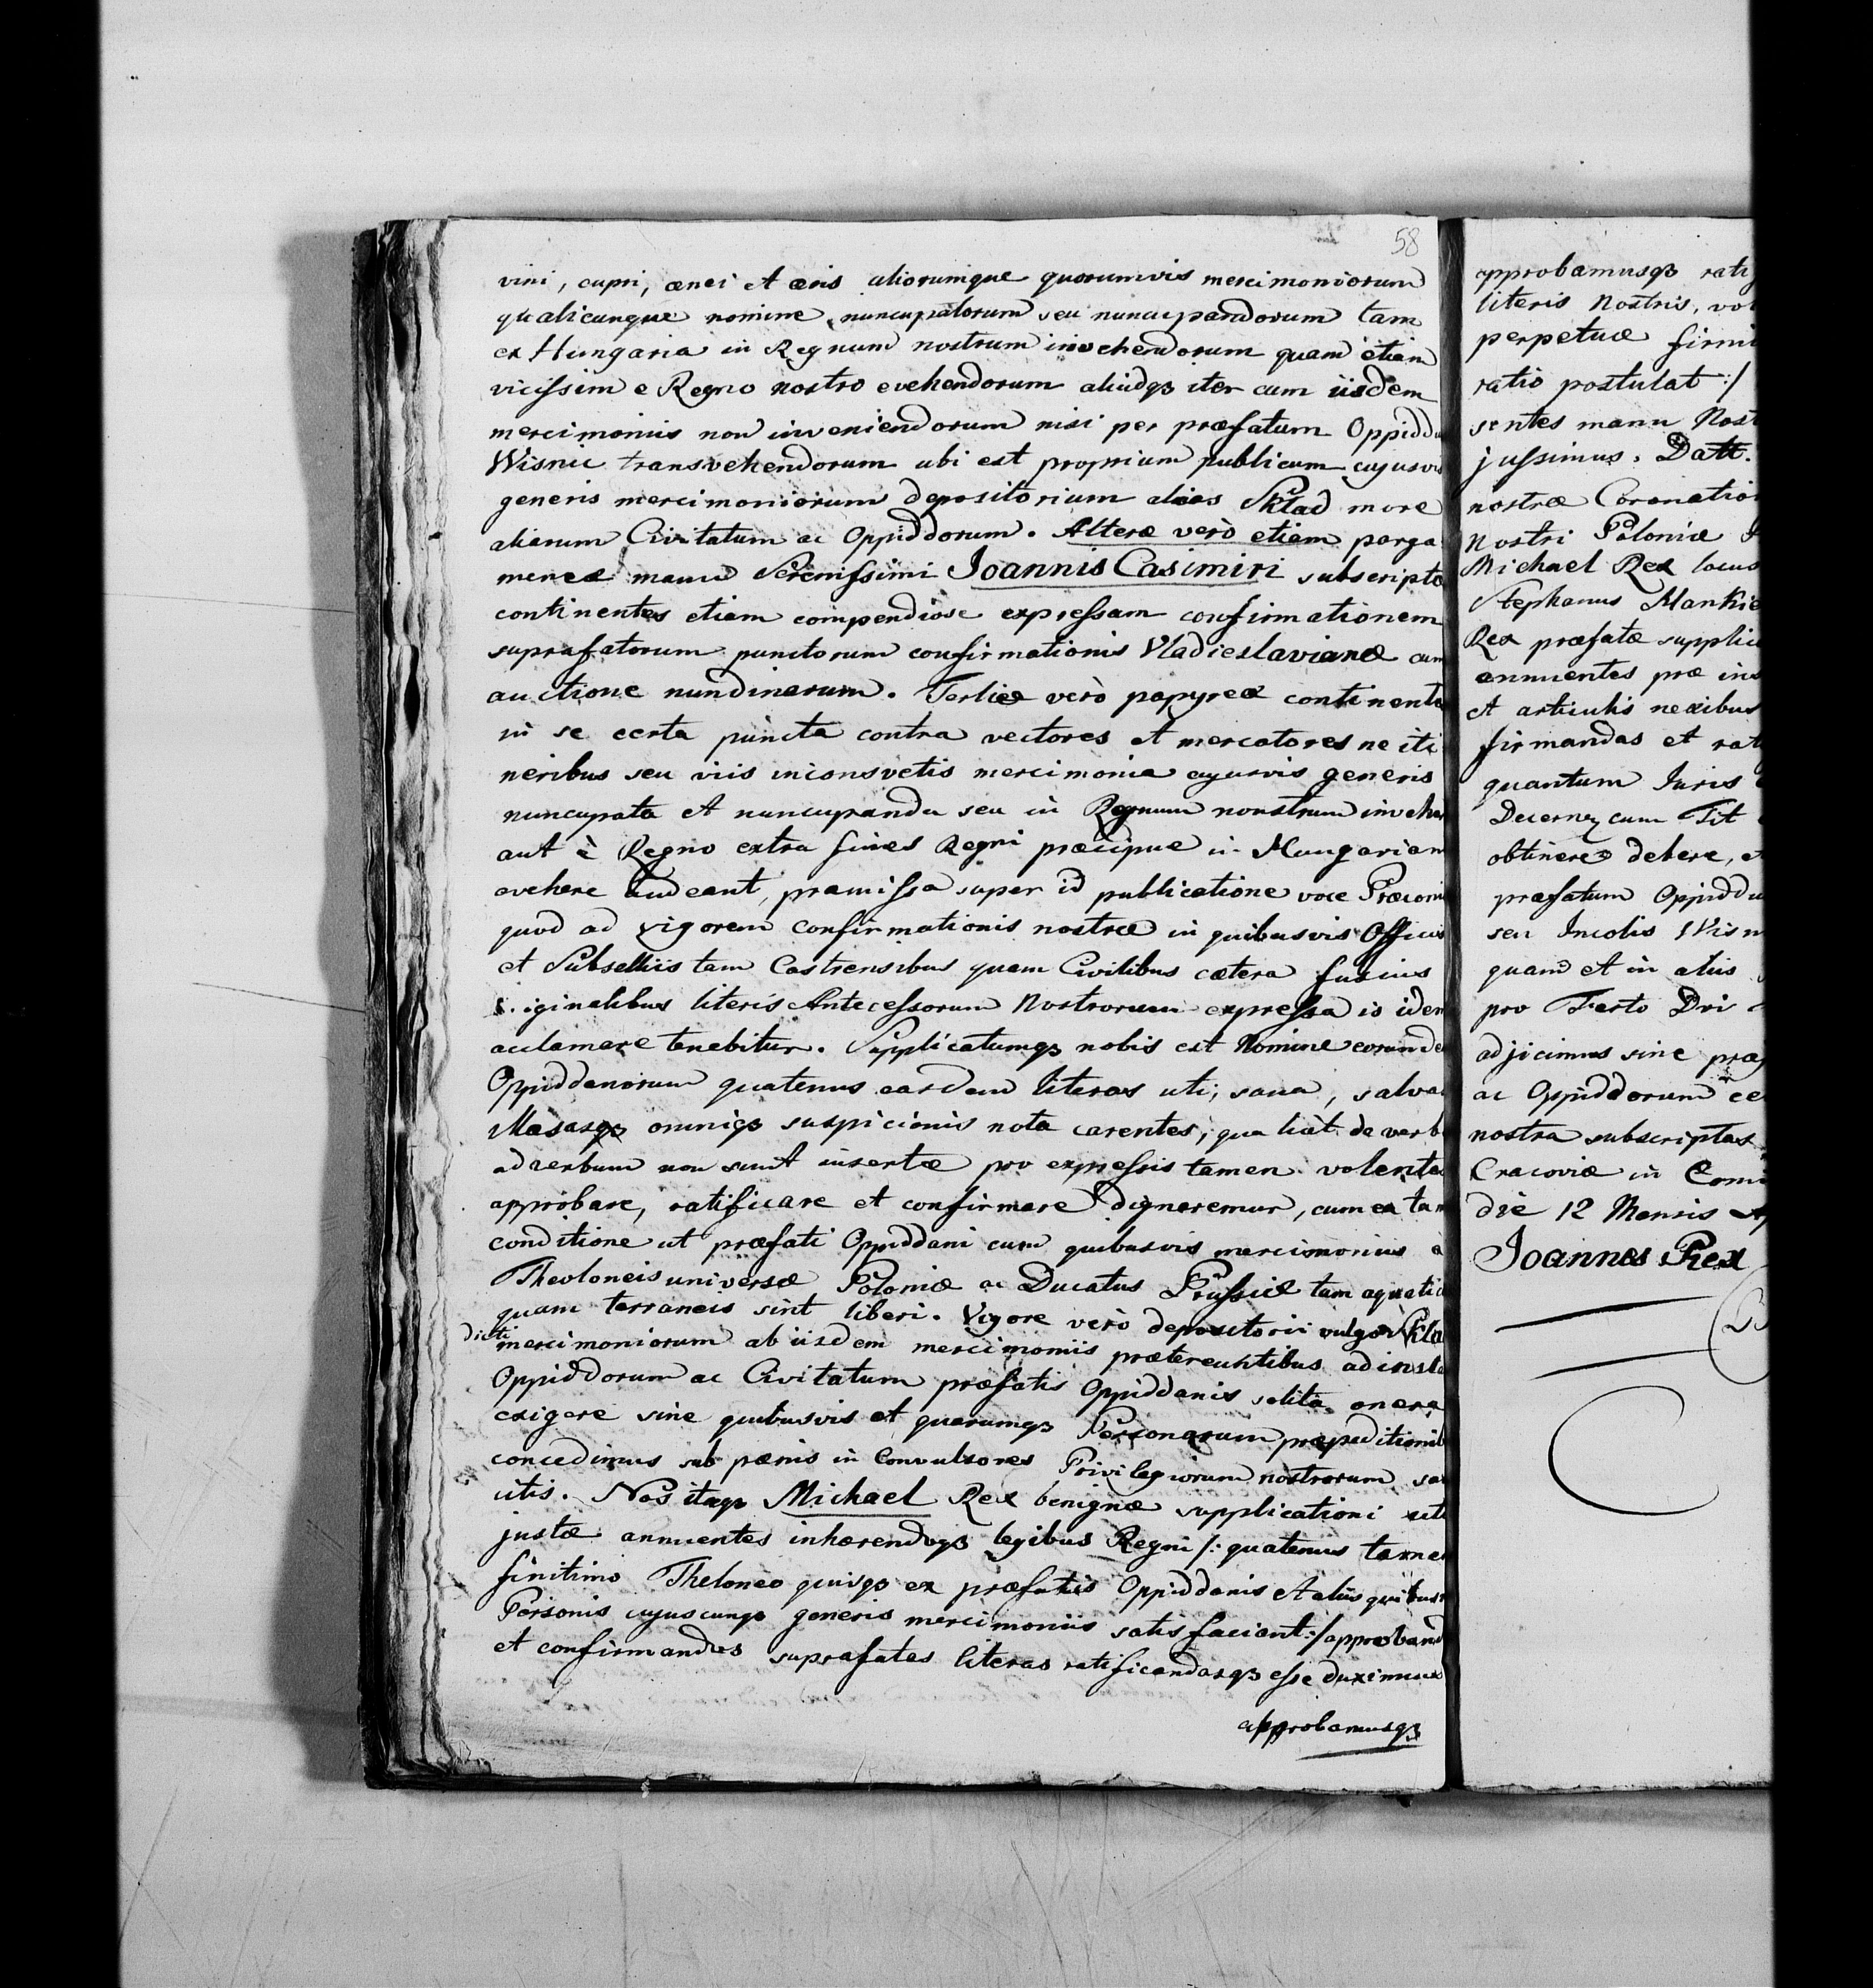 58
vini, cupri, ænei et æris aliorumque quorumvis mercimoniorum
qualicunque nomine nuncupatorum seu nuncupandorum tam
ex Hungaria in Regnum nostrum invehendorum quam etiam
vicissim e Regno nostro evehendorum aliudqꝫ iter cum iisdem
mercimoniis non inveniendorum nisi per præfatum Oppiddu
Wisnic transvehendorum ubi est proprium publicum cujusvis
generis mercimoniorum depositorium alias Skład more
aliarum Civitatum ac Oppiddorum. Alteræ verò etiam parga
meneæ manu Serenissimi Joannis Casimiri subscripto
continentes etiam compendiose expressam confirmationem
suprafatorum punctorum confirmationis Vladislavianæ cum
auctione nundinarum. Tertiæ verò papyreæ continente
in se certa puncta contra vectores et mercatores ne iti
neribus seu viis inconsvetis mercimonia cujusvis generis
nuncupata et nuncupanda seu in Regnum nonstrum inveha
aut è Regno extra fines Regni præcipue in Hungariam
evehere audeant, præmissa super id publicatione voce Præconi
quod ad vigorem confirmationis nostræ in quibusvis Officiis
et Subselliis tam Castrensibus quam Civilibus cætera fusius
iginalibus literis Antecessorum Nostrorum expressa is idem
aclamare tenebitur. Supplicatumqꝫ nobis est Nomine eorunde
Oppiddanorum quatenus easdem literas uti, sana, salva
Illæsasqꝫ omniqꝫ suspicionis nota carentes, qua licèt de verbo
ad verbum non sunt insertæ pro expressis tamen volenta
approbare, ratificare et confirmare dignaremur, cum ea tam
conditione ut præfati Oppiddani cum quibusvis mercimoniis a
Theoloneis universæ Poloniæ ac Ducatus Prussiæ tam aquatic
quam terraneis sint liberi. Vigore verò depositorii vulgo Skła
dicti mercimoniorum ab iisdem mercimoniis prætereuntibus ad insta
Oppiddorum ac Civitatum præfatis Oppiddanis solita onera
exigere sine quibusvis et quarumqꝫ Personarum præpeditionib
concedimus sub pænis in Convulsores Privilegiorum nostrorum san
citis. Nos itaqꝫ Michael Rex benignæ supplicationi uti
justæ annuentes inhærendoqꝫ legibus Regni /: quatenus tamen
finitimo Theloneo quivqꝫ ex præfatis Oppiddanis et aliis quibusv
Personis cujuscunqꝫ generis mercimoniis satisfaciant :/ approband
et confirmandas suprafatas literas ratificandasqꝫ esse duximus
approbamusqꝫ
approbamusqꝫ rati
literis Nostris, vol
perpetuæ firmi
ratio postulat :/
sentes manu Nost
jussimus. Datt.
nostræ Coronatio
Nostri Poloniæ
Michael Rex locus
Stephanus Hankie
Rex præfatæ supplic
annuentes præ ins
et articulis nexibus
firmandas et rat
quantum Juris
Decern cum Tit
obtinere debere, et
præfatum Oppiddu
seu Incolis Wisn
quam et in aliis
pro Festo Dni
adjicimus sine præj
ac Oppiddorum ce
nostra subscriptas
Cracoviæ in Comi
die 12 Mensis Ap
Joannes Rex